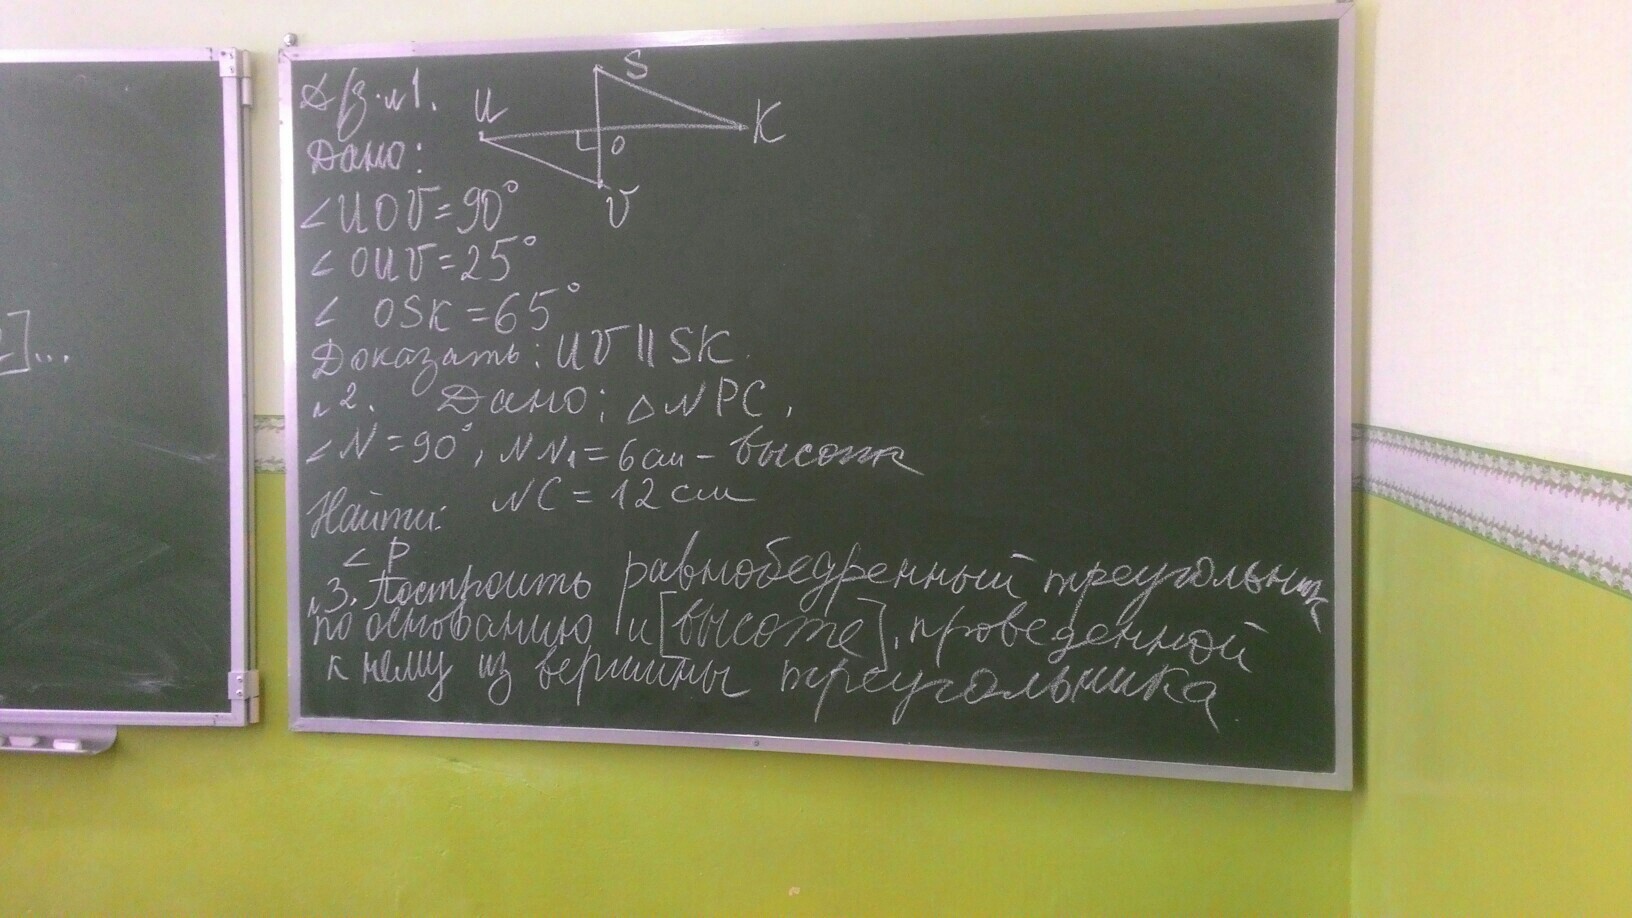 ]...
Д/з. №1.
U S K O V
Дано:
∠UOV=90°
∠OUV=25°
∠ OSK=65°
Доказать: UV || SK.
№2. Дано: △NPC,
∠N=90°, NN₁=6см – высота
NC=12см
Найти:
∠P
№3. Построить равнобедренный треугольник
по основанию и [высоте], проведенной
к нему из вершины треугольника.